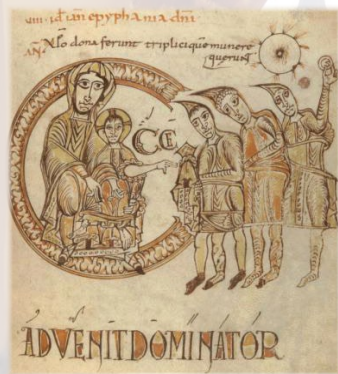 id ian epyphania dni
dona ferunt triplicique munere
querunt
ECCE
ADVENIT DOMINATOR